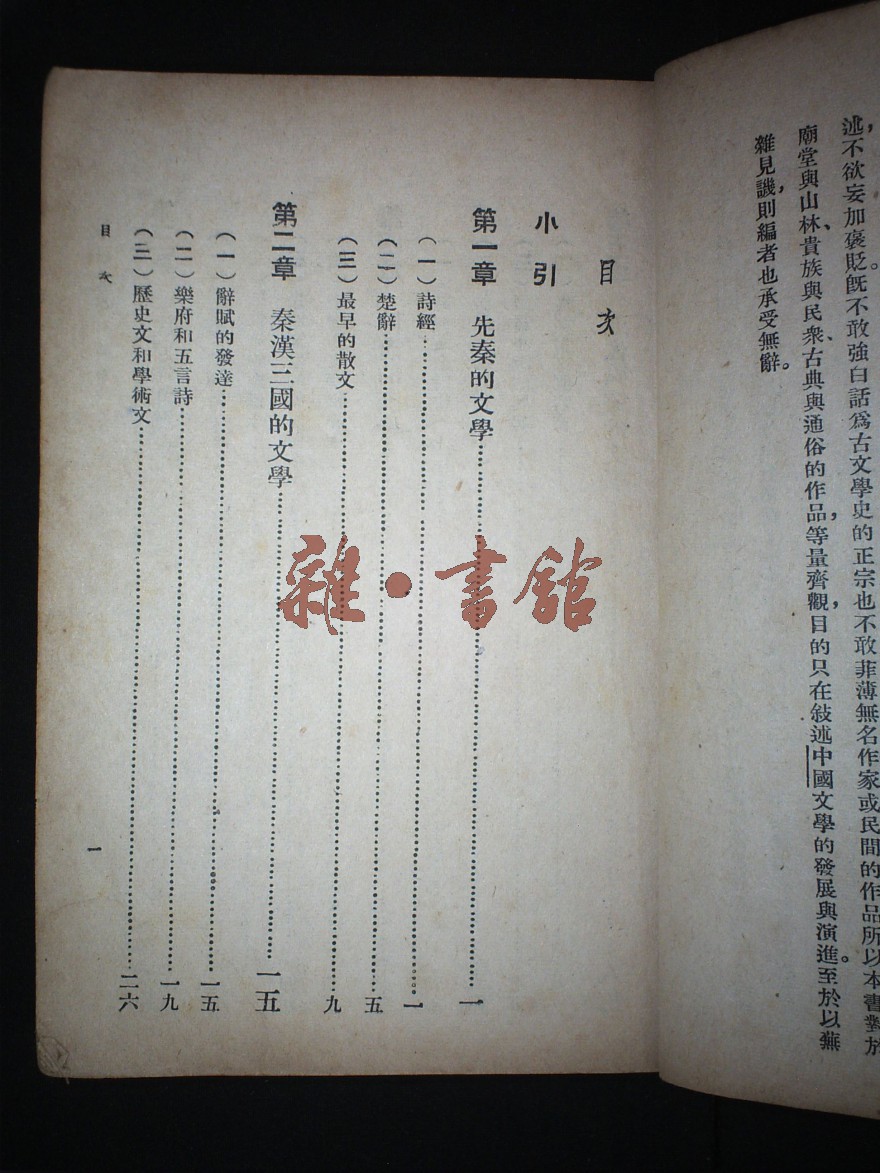 述,不欲妄加褒貶。旣不敢強白話爲古文學史的正宗也不敢菲薄無名作家或民間的作品。所以本書對於
廟堂與山林、貴族與民衆、古典與通俗的作品,等量齊觀,目的只在敍述中國文學的發展與演進至於以蕪
雜見譏,則編者也承受無辭。
目次
小引
第一章 先秦的文學……一
(一)詩經……一
(二)楚辭……五
(三)最早的散文……九
第二章 秦漢三國的文學……一五
(一)辭賦的發達……一五
(二)樂府和五言詩……一九
(三)歷史文和學術文……二六
目次
一
雜·書館